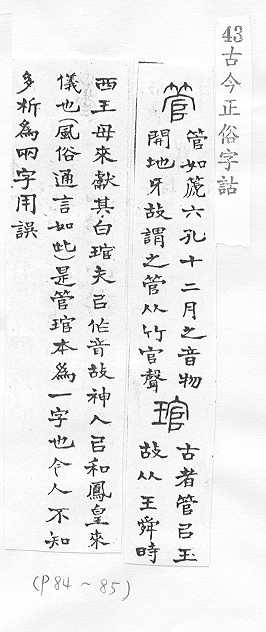 43 古今正俗字詁
管
管如篪六孔十二月之音物
開地牙故謂之管从竹官聲
琯
古者管㠯玉
故从王舜時
西王母來獻其白琯夫㠯作音故神人㠯和鳳皇來
儀也(風俗通言如此)是管琯本爲一字也今人不知
多析爲兩字用誤
(P84~85)